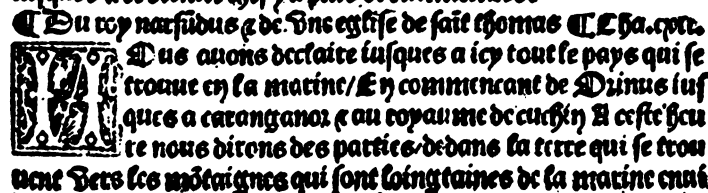 ¶ Du roy narsūdus ⁊ de vne eglise de sait thomas ¶ Cha. cxxx.
NOus auons declaire iusques a icy tout le pays qui se
trouue en la marine/ En commencant de Ormus ius
ques a caranganor ⁊ au royaume de cuchin A ceste heu
re nous dirons des parties/dedans la terre qui se trou
uent vers les mōtaignes qui sont loingtaines de la marine enui